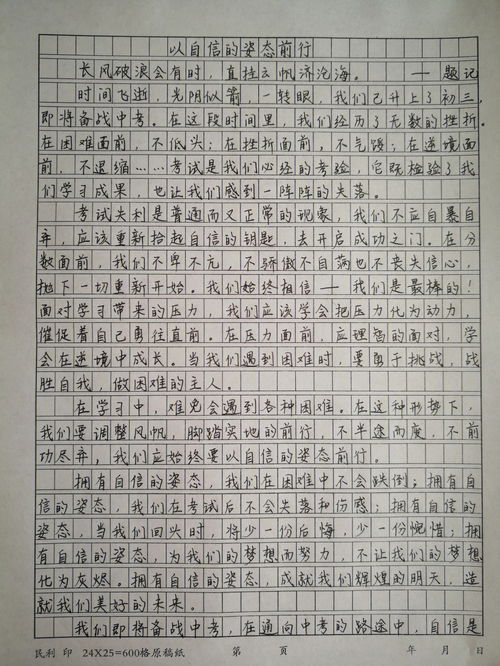 以自信的姿态前行
长风破浪会有时，直挂云帆济沧海。 ——题记
时间飞逝，光阴似箭，一转眼，我们已升上了初三，
即将备战中考。在这段时间里，我们经历了无数的挫折。
在困难面前，不低头；在挫折面前，不气馁；在逆境面
前，不退缩……考试是我们必经的考验，它既检验了我
们学习成果，也让我们感到一阵阵的失落。
考试失利是普通而又正常的现象，我们不应自暴自
弃，应该重新拾起自信的钥匙，去开启成功之门。在分
数面前，我们不卑不亢，不骄傲不自满也不丧失信心，
抛下一切重新开始。我们始终相信——我们是最棒的！
面对学习带来的压力，我们应该学会把压力化为动力，
催促着自己勇往直前。在压力面前，应理智的面对，学
会在逆境中成长。当我们遇到困难时，要勇于挑战，战
胜自我，做困难的主人。
在学习中，难免会遇到各种困难。在这种形势下，
我们要调整风帆，脚踏实地的前行，不半途而废，不前
功尽弃，我们应始终要以自信的姿态前行。
拥有自信的姿态，我们在困难中不会跌倒；拥有自
信的姿态，我们在考试后不会失落和伤感；拥有自信的
姿态，当我们回头时，将少一份后悔，少一份惋惜；拥
有自信的姿态，为我们的梦想而努力，不让我们的梦想
化为灰烬。拥有自信的姿态，成就我们辉煌的明天，造
就我们美好的未来。
我们即将备战中考，在通向中考的路途中，自信是
民利 印 24X25=600格原稿纸 第 页 年 月 日